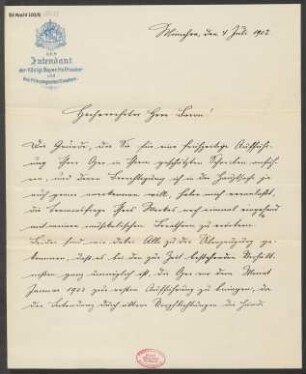 DER
Intendant
der Königl. Bayer. Hoftheater
und
des Prinzregenten-Theaters.
München, den 4 Juli 1902
Hochverehrter Herr Baron!
Die Gründe, die Sie für eine frühzeitige Aufführ-
ung Ihrer Oper in Ihrem geschätzten Schreiben anfüh-
ren, und deren Berechtigung ich in der Hauptsache ja
auch gerne anerkennen will, haben mich veranlaßt,
die Terminfrage Ihres Werkes noch einmal eingehend
mit meinen musikalischen Beratern zu erörtern.
Leider sind wir dabei Alle zu der Überzeugung ge-
kommen, daß es bei den zur Zeit bestehenden Verhält-
nissen ganz unmöglich ist, die Oper vor dem Monat
Januar 1903 zur ersten Aufführung zu bringen, da
der Intendanz durch ältere Verpflichtungen die Hände